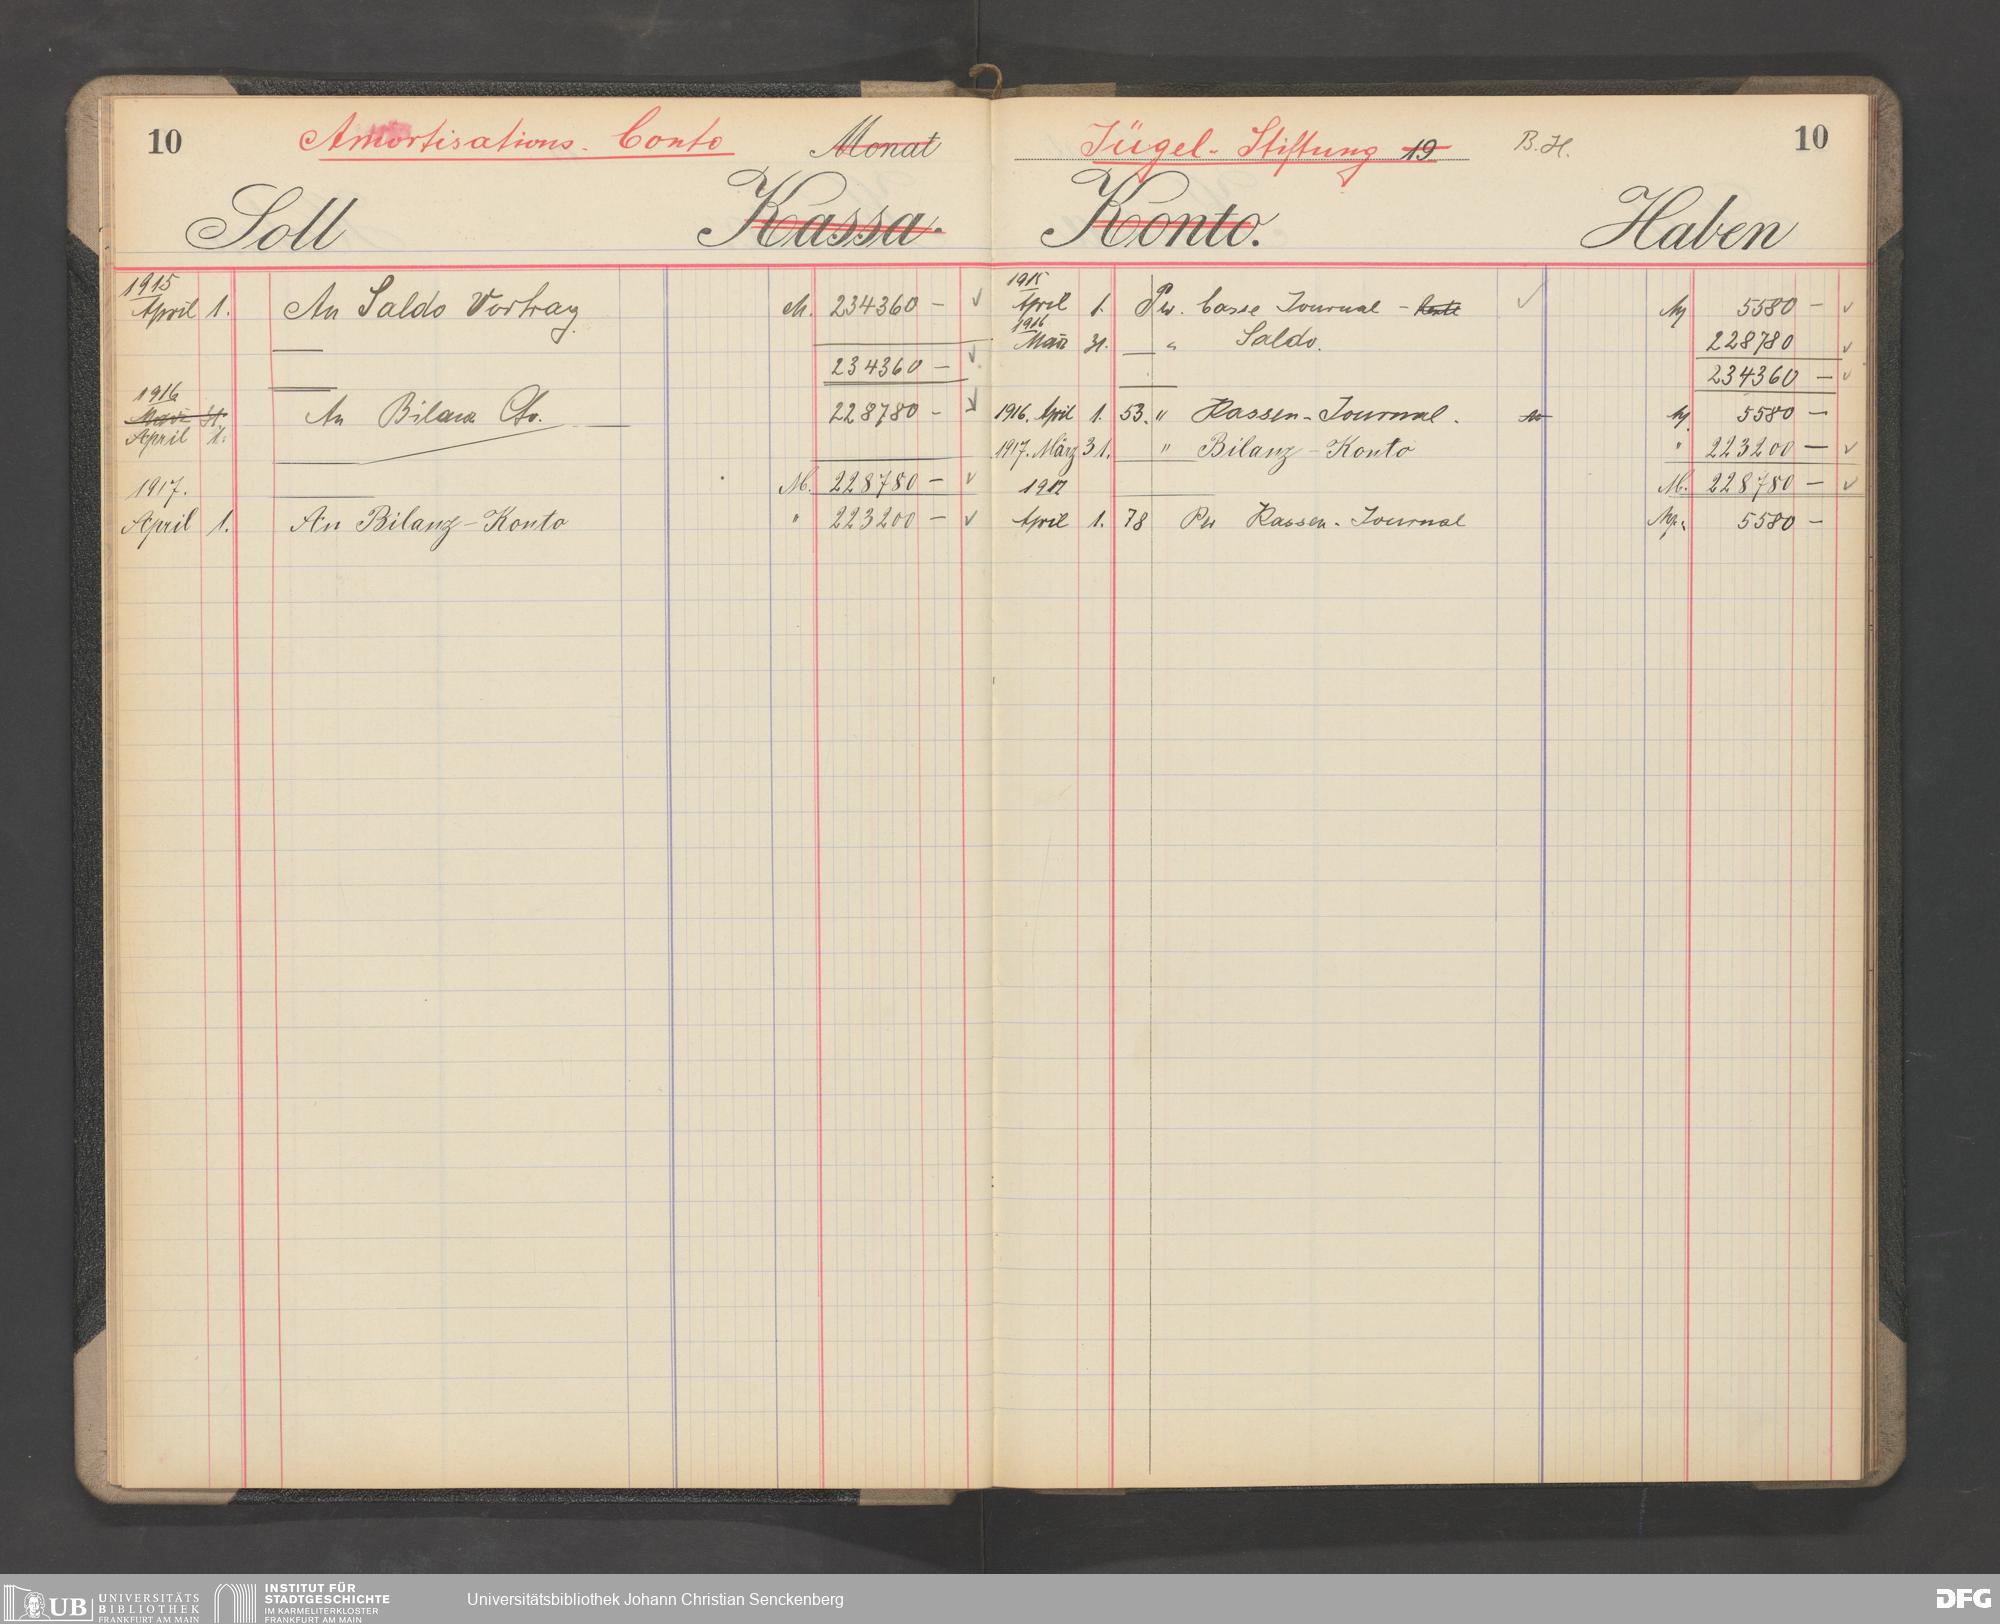 10 Amortisations-Conto Monat
Soll Kassa.
1915
April 1. An Saldo Vortrag M. 234360 –
234360 –
1916
März 31.
April 1. An Bilanz Cto. 228780 –
M. 228780 –
1917.
April 1. An Bilanz-Konto " 223200 –
Jügel-Stiftung 19 B.H. 10
Konto. Haben
1915
April 1. Per Casse Journal – M 5580 –
1916
März 31. " Saldo. 228780
234360 –
1916. April 1. 53. " Kassen-Journal. M 5580 –
1917. März 31. " Bilanz-Konto " 223200 –
M. 228780 –
1917
April 1. 78 Per Kassen-Journal 5580 –
UB UNIVERSITÄTS
BIBLIOTHEK
FRANKFURT AM MAIN
INSTITUT FÜR
STADTGESCHICHTE
IM KARMELITERKLOSTER
FRANKFURT AM MAIN
Universitätsbibliothek Johann Christian Senckenberg
DFG